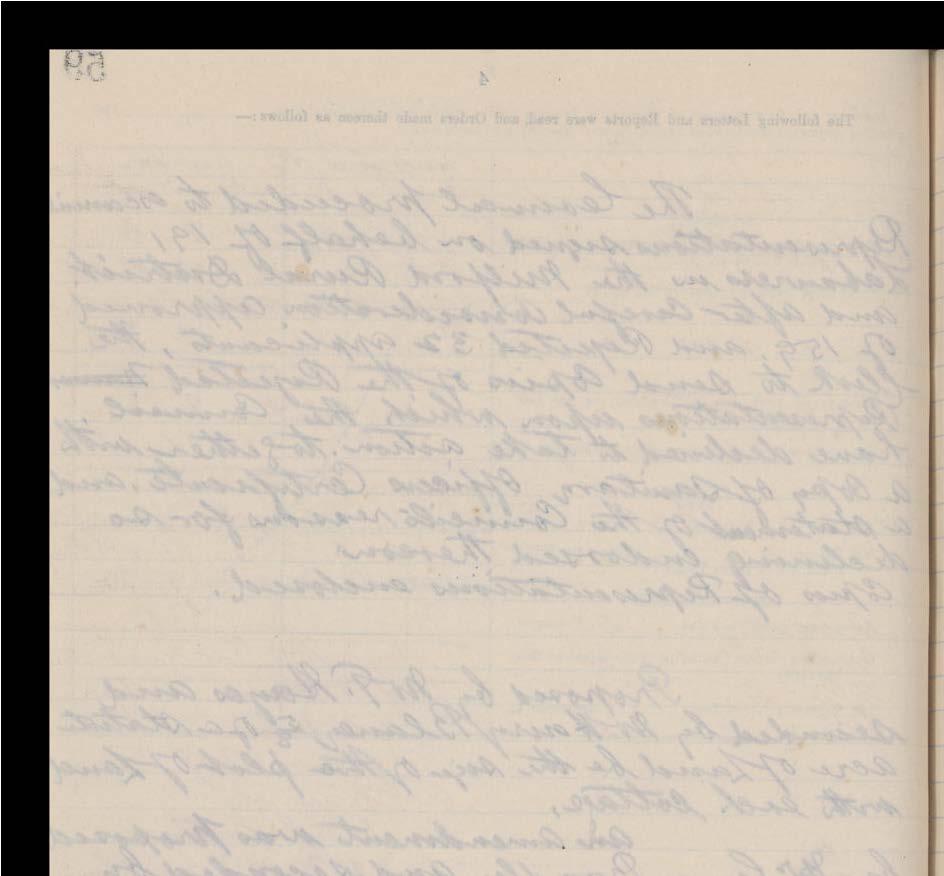 59
4
The following Letters and Reports were read, and Orders made thereon as follows:—
The Council proceeded to examine
Representations signed on behalf of 191
Labourers in the Milford Rural District
and after Careful Consideration approved
of 159, and Rejected 32 applicants, the
Clerk to send Copies of the Rejected
Representations upon which the Council
have declined to take action, together with
a Copy of Sanitary Officers Certificate and
a statement of the Council's reasons for so
declining Endorsed thereon
Copies of Representations enclosed.
Proposed by Mr T. Hayes and
seconded by Mr Harry Blaney a statute
acre of Land be the size of the plot of Land
with each Cottage,
an amendment was proposed
by Mr and seconded by